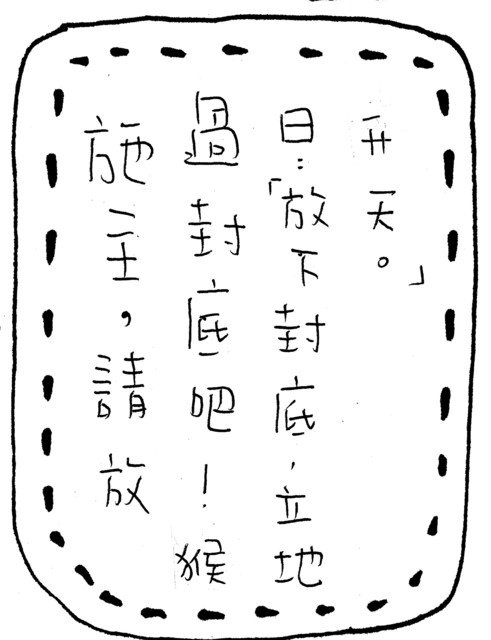 施主，請放
過封底吧！猴
曰：「放下封底，立地
升天。」